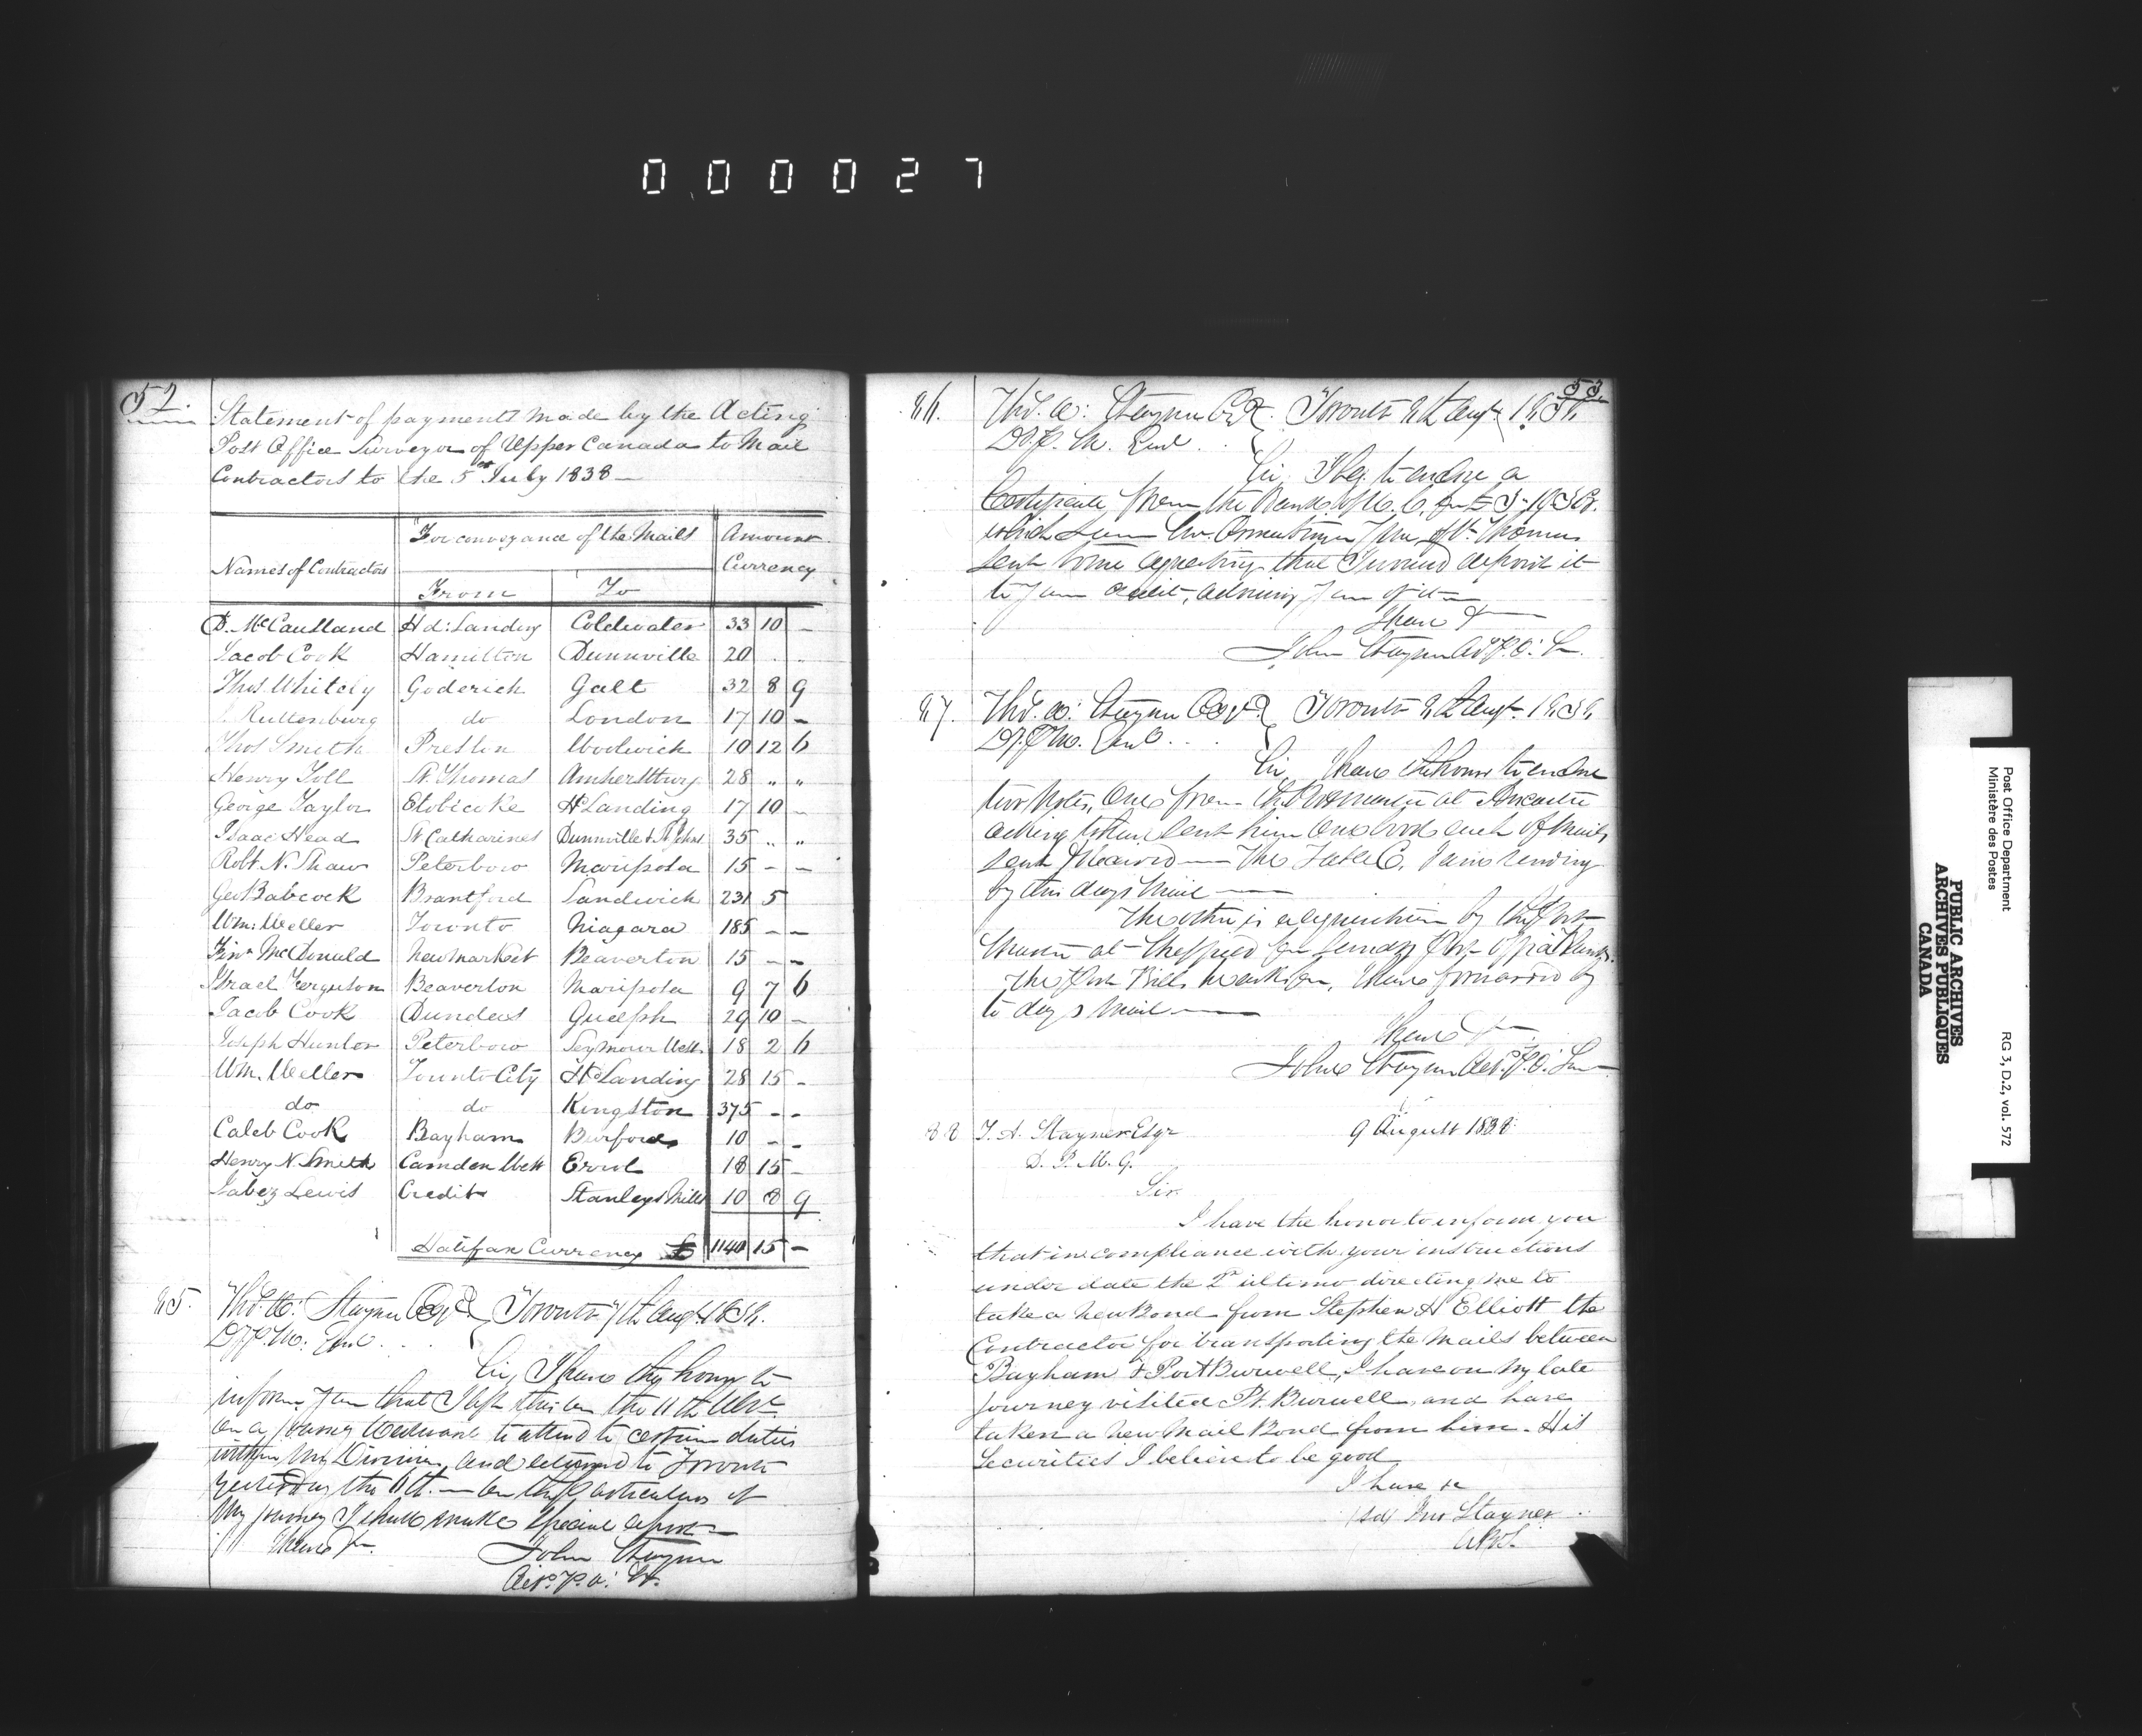 000027
52.
Statement of payments made by the Acting
Post Office Surveyor of Upper Canada to Mail
Contractors to the 5th July 1838 —
Names of Contractors | For conveyance of the Mails | Amount Currency
From | To
D. McCausland | Hd: Landing | Coldwater | 33 | 10 | –
Jacob Cook | Hamilton | Dunnville | 20 | . | .
Thos Whitely | Goderich | Galt | 32 | 8 | 9
Ruttenburg | do | London | 17 | 10 | –
Thos Smith | Preston | Woolwich | 10 | 12 | 6
Henry Toll | St. Thomas | Amherstburg | 28 | " | "
George Taylor | Etobicoke | Hd Landing | 17 | 10 | –
Isaac Head | St Catharines | Dunnville & St Johns | 35 | " | "
Robt. N. Shaw | Peterboro | Mariposa | 15 | – | –
Geo Babcock | Brantford | Sandwich | 231 | 5
Wm. Weller | Toronto | Niagara | 185 | – | –
McDonald | New Market | Beaverton | 15 | – | –
Israel Ferguson | Beaverton | Mariposa | 9 | 7 | 6
Jacob Cook | Dundas | Guelph | 29 | 10 | –
Joseph Hunter | Peterboro | Seymour West | 18 | 2 | 6
Wm. Weller | Toronto City | Hd Landing | 28 | 15 | –
do | do | Kingston | 375 | – | –
Caleb Cook | Bayham | Burford | 10 | – | –
Henry N. Smith | Camden West | Errol | 18 | 15 | –
Jabez Lewis | Credit | Stanleys Mills | 10 | 8 | 9
Halifax Currency £ | 1140 | 15 | –
85. Thos. A: Stayner Esqr. Toronto 7th Augt. 1838.
D. P. M. Genl.
Sir, I have the honor to
inform you that I left this on the 11th Ulto.
on a journey Westward to attend to certain duties
within my Division, and returned to Toronto
yesterday the — on the particulars of
my journey I shall make special report —
I have &c.
John Stayner
Act. P. O. Sr.
53.
86. Thos. A: Stayner Esqr. Toronto 8th Augt. 1838
D. P. M. Genl.
Sir, I beg to enclose a
Certificate from the Bank of U. C. for
which sum Mr. of St. Thomas
sent to me requesting that I would deposit it
to your credit, advising you of it —
I have &c
John Stayner A. P. O. Sr.
87. Thos. A: Stayner Esqr. Toronto 8th Augt. 1838
D. P. M. Genl.
Sir, I have the honor to enclose
two Notes, One from the Postmaster at Ancaster
asking to have sent him One book each of Mails
sent & received — The I am sending
by this days Mail —
The other is a requisition by the Post
Master at for sundry Post Office Blanks.
The Post Bills he asks for, I have forwarded by
to days Mail —
I have &c
John Stayner Act. P. O. Sr.
88 T. A. Stayner Esqr 9 August 1838
D. P. M. G.
Sir
I have the honor to inform you
that in compliance with your instructions
under date the 2d ultimo directing me to
take a new Bond from Stephen H Elliott the
Contractor for transporting the mails between
Bayham & Port Burwell, I have on my late
journey visited Pt. Burwell and have
taken a new Mail Bond from him. His
Securities I believe to be good
I have &c
(sd) Jno Stayner
Post Office Department
Ministère des Postes
PUBLIC ARCHIVES
ARCHIVES PUBLIQUES
CANADA
RG 3, D.2, vol. 572